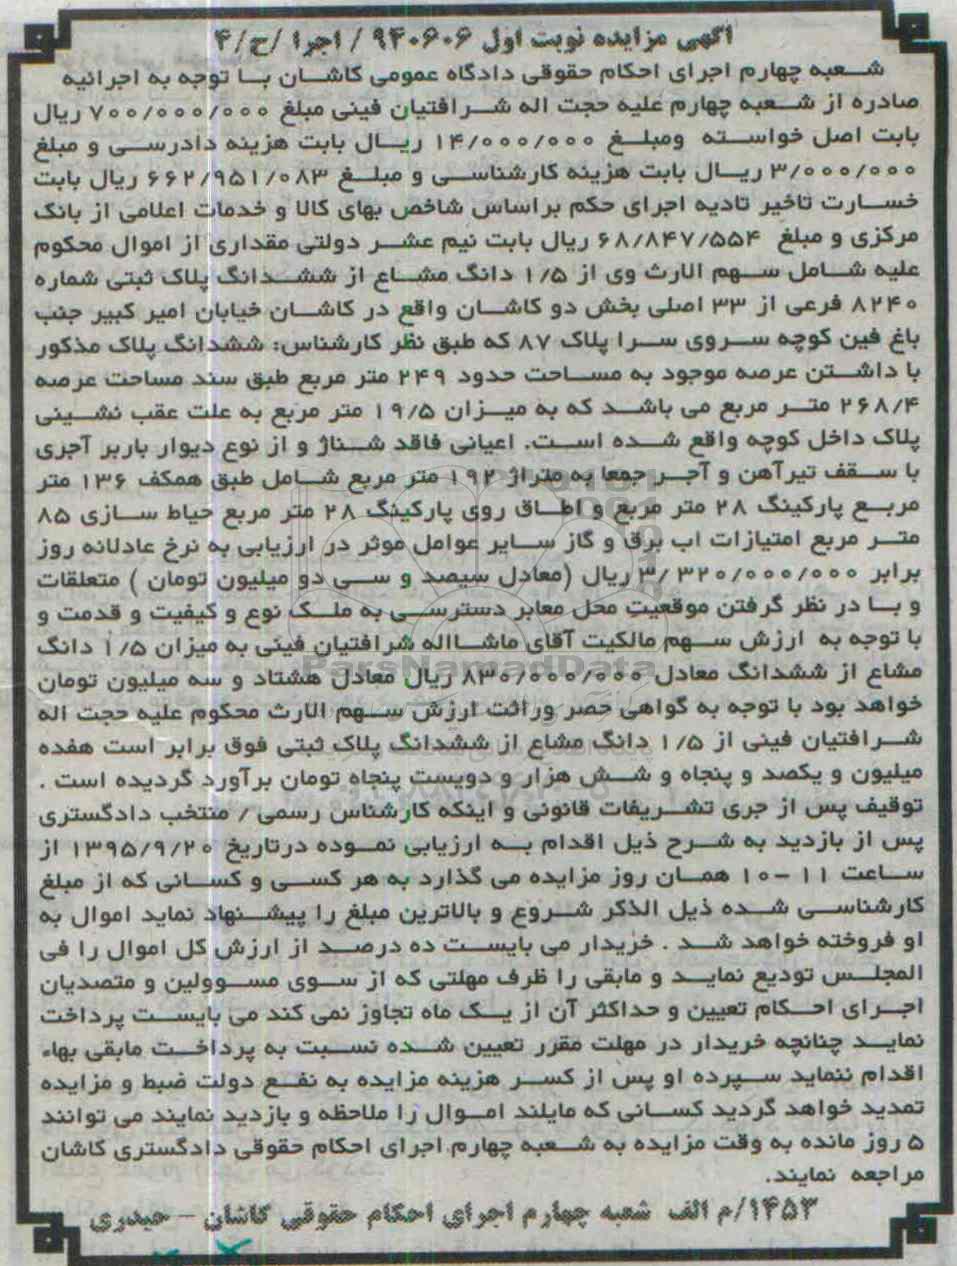 آگهی مزایده نوبت اول ۹۴۰۶۰۶ / اجرا /ح/۴
شعبه چهارم اجرای احکام حقوقی دادگاه عمومی کاشان با توجه به اجرائیه
صادره از شعبه چهارم علیه حجت اله شرافتیان فینی مبلغ ۷۰۰/۰۰۰/۰۰۰ ریال
بابت اصل خواسته ومبلغ ۱۴/۰۰۰/۰۰۰ ریال بابت هزینه دادرسی و مبلغ
۳/۰۰۰/۰۰۰ ریال بابت هزینه کارشناسی و مبلغ ۶۶۲/۹۵۱/۰۸۳ ریال بابت
خسارت تاخیر تادیه اجرای حکم براساس شاخص بهای کالا و خدمات اعلامی از بانک
مرکزی و مبلغ ۶۸/۸۴۷/۵۵۴ ریال بابت نیم عشر دولتی مقداری از اموال محکوم
علیه شامل سهم الارث وی از ۱/۵ دانگ مشاع از ششدانگ پلاک ثبتی شماره
۸۲۴۰ فرعی از ۳۳ اصلی بخش دو کاشان واقع در کاشان خیابان امیر کبیر جنب
باغ فین کوچه سروی سرا پلاک ۸۷ که طبق نظر کارشناس: ششدانگ پلاک مذکور
با داشتن عرصه موجود به مساحت حدود ۲۴۹ متر مربع طبق سند مساحت عرصه
۲۶۸/۴ متر مربع می باشد که به میزان ۱۹/۵ متر مربع به علت عقب نشینی
پلاک داخل کوچه واقع شده است. اعیانی فاقد شناژ و از نوع دیوار باربر آجری
با سقف تیرآهن و آجر جمعا به متراژ ۱۹۲ متر مربع شامل طبق همکف ۱۳۶ متر
مربع پارکینگ ۲۸ متر مربع و اطاق روی پارکینگ ۲۸ متر مربع حیاط سازی ۸۵
متر مربع امتیازات اب برق و گاز سایر عوامل موثر در ارزیابی به نرخ عادلانه روز
برابر ۳/۳۲۰/۰۰۰/۰۰۰ ریال (معادل سیصد و سی دو میلیون تومان ) متعلقات
و با در نظر گرفتن موقعیت محل معابر دسترسی به ملک نوع و کیفیت و قدمت و
با توجه به ارزش سهم مالکیت آقای ماشااله شرافتیان فینی به میزان ۱/۵ دانگ
ParsNamadData
مشاع از ششدانگ معادل ۸۳۰/۰۰۰/۰۰۰ ریال معادل هشتاد و سه میلیون تومان
خواهد بود با توجه به گواهی حصر وراثت ارزش سهم الارث محکوم علیه حجت اله
شرافتیان فینی از ۱/۵ دانگ مشاع از ششدانگ پلاک ثبتی فوق برابر است هفده
میلیون و یکصد و پنجاه و شش هزار و دویست پنجاه تومان برآورد گردیده است .
توقیف پس از جری تشریفات قانونی و اینکه کارشناس رسمی / منتخب دادگستری
پس از بازدید به شرح ذیل اقدام به ارزیابی نموده درتاریخ ۱۳۹۵/۹/۲۰ از
ساعت ۱۱ -۱۰ همان روز مزایده می گذارد به هر کسی و کسانی که از مبلغ
کارشناسی شده ذیل الذکر شروع و بالاترین مبلغ را پیشنهاد نماید اموال به
او فروخته خواهد شد . خریدار می بایست ده درصد از ارزش کل اموال را فی
المجلس تودیع نماید و مابقی را ظرف مهلتی که از سوی مسوولین و متصدیان
اجرای احکام تعیین و حداکثر آن از یک ماه تجاوز نمی کند می بایست پرداخت
نماید چنانچه خریدار در مهلت مقرر تعیین شده نسبت به پرداخت مابقی بهاء
اقدام ننماید سپرده او پس از کسر هزینه مزایده به نفع دولت ضبط و مزایده
تمدید خواهد گردید کسانی که مایلند اموال را ملاحظه و بازدید نمایند می توانند
۵ روز مانده به وقت مزایده به شعبه چهارم اجرای احکام حقوقی دادگستری کاشان
مراجعه نمایند.
۱۴۵۳/م الف شعبه چهارم اجرای احکام حقوقی کاشان – حیدری